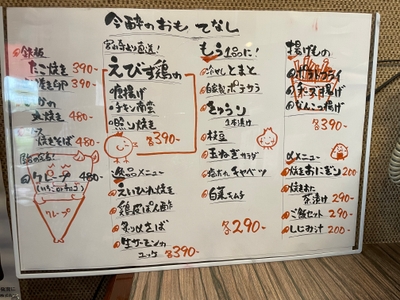 今宵のおもてなし
鉄板
たこ焼き 390-
390-
480-
焼きそば 480-
クレープ 480-
(いちごorチョコ)
クレープ
直送!
えびす鶏の
唐揚げ
チキン南蛮
照り焼き
各390-
逸品メニュー
えいひれ焼き
鶏皮ぽん酢
生サーモンの
ユッケ 各390-
もう1品に!
冷やしとまと
自家製ポテサラ
きゅうり
1本漬け
枝豆
玉ねぎサラダ
塩だれキャベツ
白菜キムチ
各290-
揚げもの
ポテトフライ
チーズ揚げ
なんこつ揚げ
各390-
〆メニュー
焼きおにぎり 200
焼きおに
茶漬け 290-
ご飯セット 290-
しじみ汁 200-